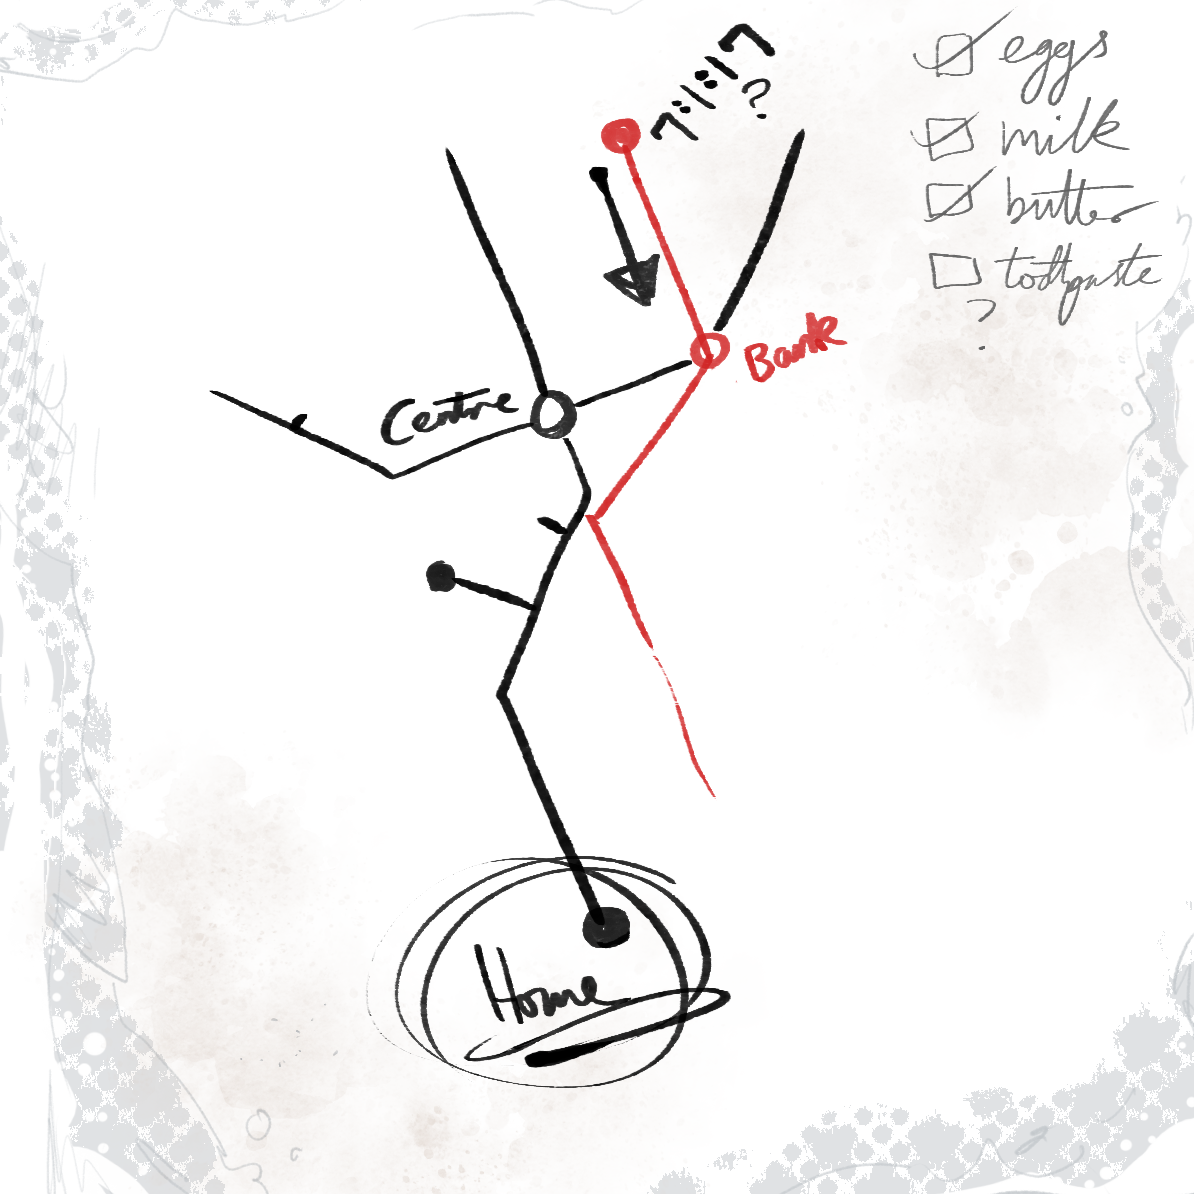 7:1:17
?
eggs
milk
butter
toothpaste
?
Bank
Centre
Home